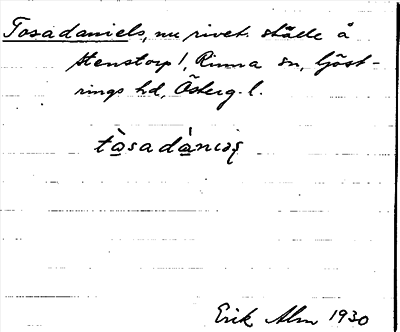 Tosadaniels, nu rivet ställe å
Stenstorp /, Rinna sn, Göst-
rings hd, Österg. l.
Erik Alm 1930